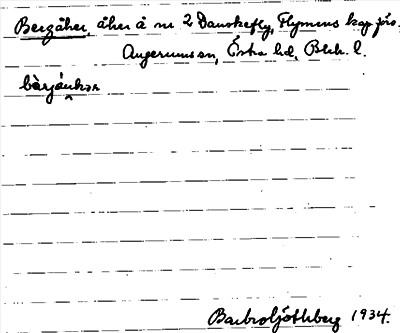 Bergåker, åker å nr 2 Danskefly, Flymens kap.förs.
Augerums sn, Östra hd, Blek. l.
bàrjáukər
Barbro Ljöthberg 1934.